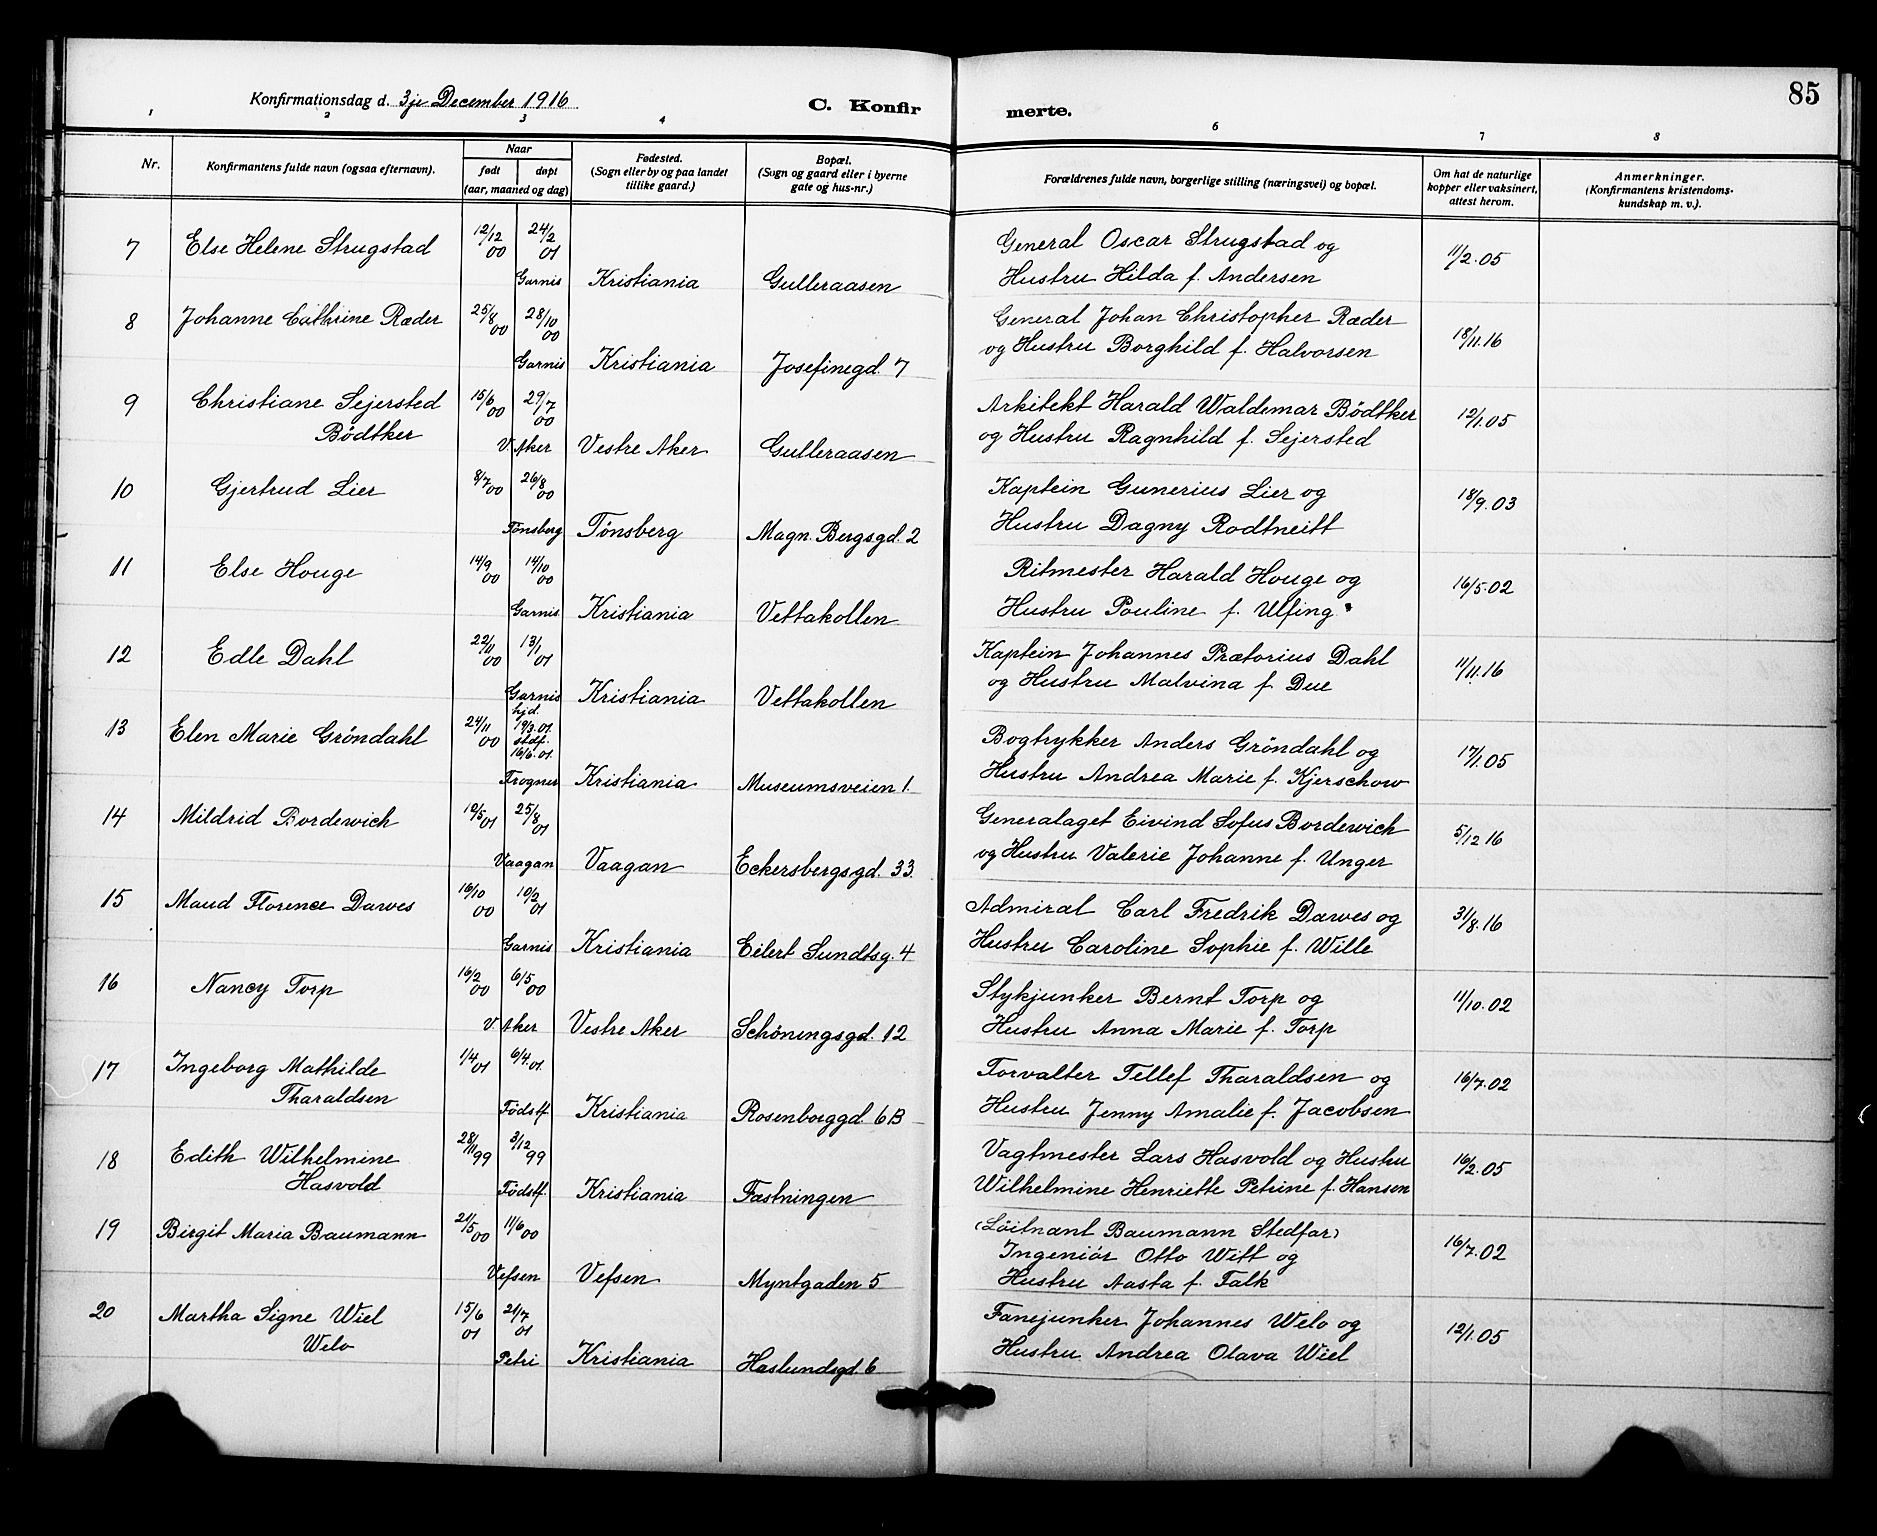 85
Konfirmationsdag d. 3je December 1916. C. Konfir merte.
1 2 3 4 6 7 8
Nr. Konfirmantens fulde navn (ogsaa efternavn). Naar født døpt (aar, maaned og dag) Fødested. (Sogn eller by og paa landet tillike gaard.) Bopæl. (Sogn og gaard eller i byerne gate og hus-nr.) Forældrenes fulde navn, borgerlige stilling (næringsvei) og bopæl. Om hat de naturlige kopper eller vaksinert, attest herom. Anmerkninger. (Konfirmantens kristendoms-kundskap m. v.).
7 Else Helene Strugstad 12/12 00 24/2 01 General Oscar Strugstad og 11/2.05
Garnis Kristiania Gulleraasen Hustru Hilda f. Andersen
8 Johanne Cathrine Ræder 25/8 00 28/10 00 General Johan Christopher Ræder 18/11.16
Garnis Kristiania Josefinegd. 7 og Hustru Borghild f. Halvorsen
9 Christiane Sejersted 15/6 00 29/7 00 Arkitekt Harald Waldemar Bödtker 12/1.05
Bödtker V. Aker Vestre Aker Gulleraasen og Hustru Ragnhild f. Sejersted
10 Gjertrud Lier 8/7 00 26/8 00 Kaptein Gunerius Lier og 18/9.03
Tønsberg Tønsberg Magn. Bergsgd. 2 Hustru Dagny Rodtneitt
11 Else Houge 14/9 00 14/10 00 Ritmester Harald Houge og 16/5.02
Garnis Kristiania Vettakollen Hustru Pouline f. Ulfing
12 Edle Dahl 22/11 00 13/1 01 Kaptein Johannes Prætorius Dahl 11/11.16
Garnis Kristiania Vettakollen og Hustru Malvina f. Due
13 Elen Marie Gröndahl 24/11 00 hjd. 19/3.01. stdf. 16/6.01. Bogtrykker Anders Gröndahl og 17/1.05
Frogner Kristiania Museumsveien 1. Hustru Andrea Marie f. Kjerschow
14 Mildrid Bordewich 19/5 01 25/8 01 Generalaget Eivind Sofus Bordewich 5/12 16
Vaagan Vaagan Eckersbergsgd. 33. og Hustru Valerie Johanne f. Unger
15 Maud Florence Dawes 16/10 00 10/2 01 Admiral Carl Fredrik Dawes og 31/8.16
Garnis Kristiania Eilert Sundtsg. 4 Hustru Caroline Sophie f. Wille
16 Nancy Torp 16/2 00 6/5 00 Stykjunker Bernt Torp og 11/10.02
V. Aker Vestre Aker Schöningsgd. 12 Hustru Anna Marie f. Torp
17 Ingeborg Mathilde 1/4 01 6/4.01. Forvalter Tellef Tharaldsen og 16/7.02
Tharaldsen Födstf. Kristiania Rosenborggd. 6B Hustru Jenny Amalie f. Jacobsen
18 Edith Wilhelmine 28/11 99 3/12 99 Vagtmester Lars Hasvold og Hustru 16/2.05
Hasvold Födstf. Kristiania Fæstningen Wilhelmine Henriette Petrine f. Hansen
19 Birgit Maria Baumann 21/5 00 11/6 00 (Löitnant Baumann Stedfar) 16/7.02
Ingeniör Otto Witt og
Vefsen Vefsen Myntgaden 5 Hustru Aasta f. Falk
20 Martha Signe Wiel 15/6 01 21/7 01 Fanejunker Johannes Welo og 12/1.05
Welo Petri Kristiania Haslundsgd. 6 Hustru Andrea Olava Wiel